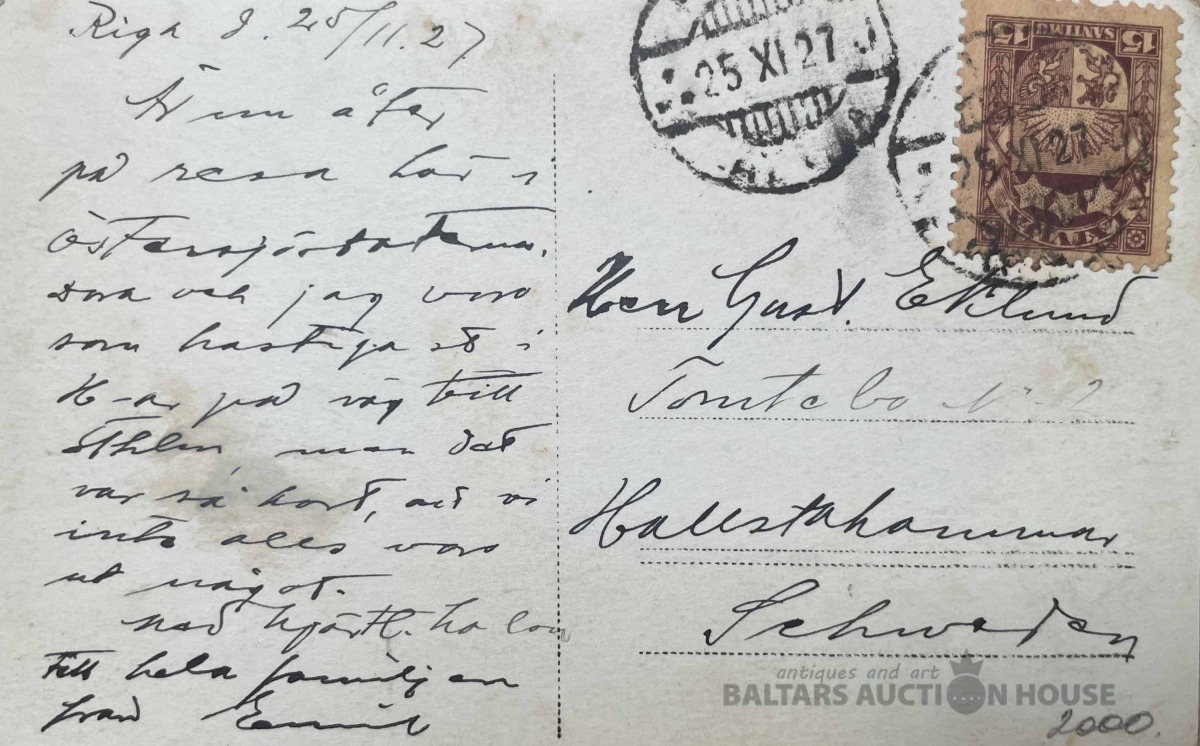 Riga d. 25/11.27
Är nu åter
på resa här i
Östersjöstaterna.
Dora och jag voro
som hastigast i
H-ar på väg till
Sthlm, men det
var så kort, att vi
inte alls voro
ut något.
Med hjärtl. hälsn
till hela familjen
från Emil
25 XI 27
15 SANTIMU 15
LATVIJA
25 XI 27
Herr Gust. Eklund
Tomtebo N:o 2
Hallstahammar
Schweden
antiques and art
BALTARS AUCTION HOUSE
2000.